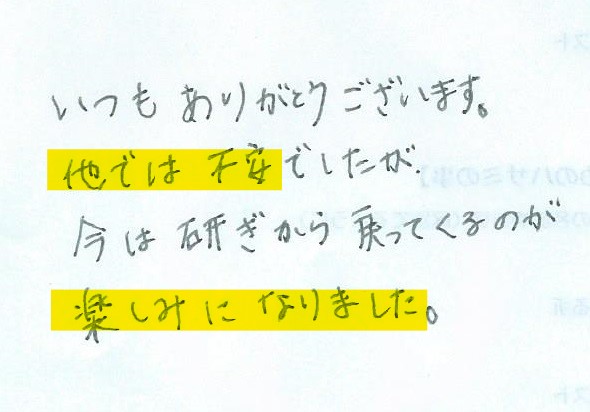 いつもありがとうございます。
他では不安でしたが、
今は研ぎから戻ってくるのが
楽しみになりました。